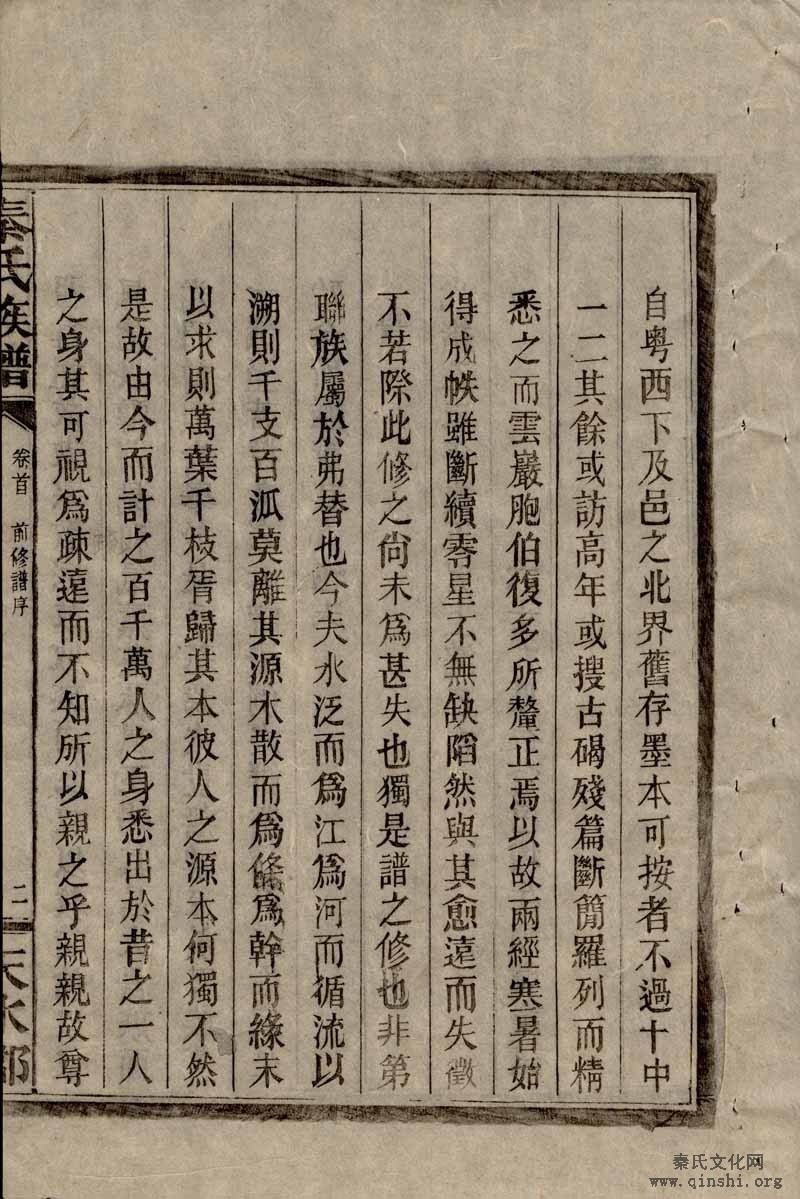 自粤西下及邑之北界舊存墨本可按者不過十中
一二其餘或訪高年或搜古碣殘篇斷簡羅列而精
悉之而雲巖胞伯復多所釐正焉以故兩經寒暑始
得成帙雖斷續零星不無缺陷然與其愈遠而失徵
不若際此修之尙未爲甚失也獨是譜之修也非第
聯族屬於弗替也今夫水泛而爲江爲河而循流以
溯則千支百派莫離其源木散而爲條爲幹而緣末
以求則萬葉千枝胥歸其本彼人之源本何獨不然
是故由今而計之百千萬人之身悉出於昔之一人
之身其可視爲疎遠而不知所以親之乎親親故尊
秦氏族譜
卷首 前修譜序
二
天水郡
秦氏文化网
www.qinshi.org